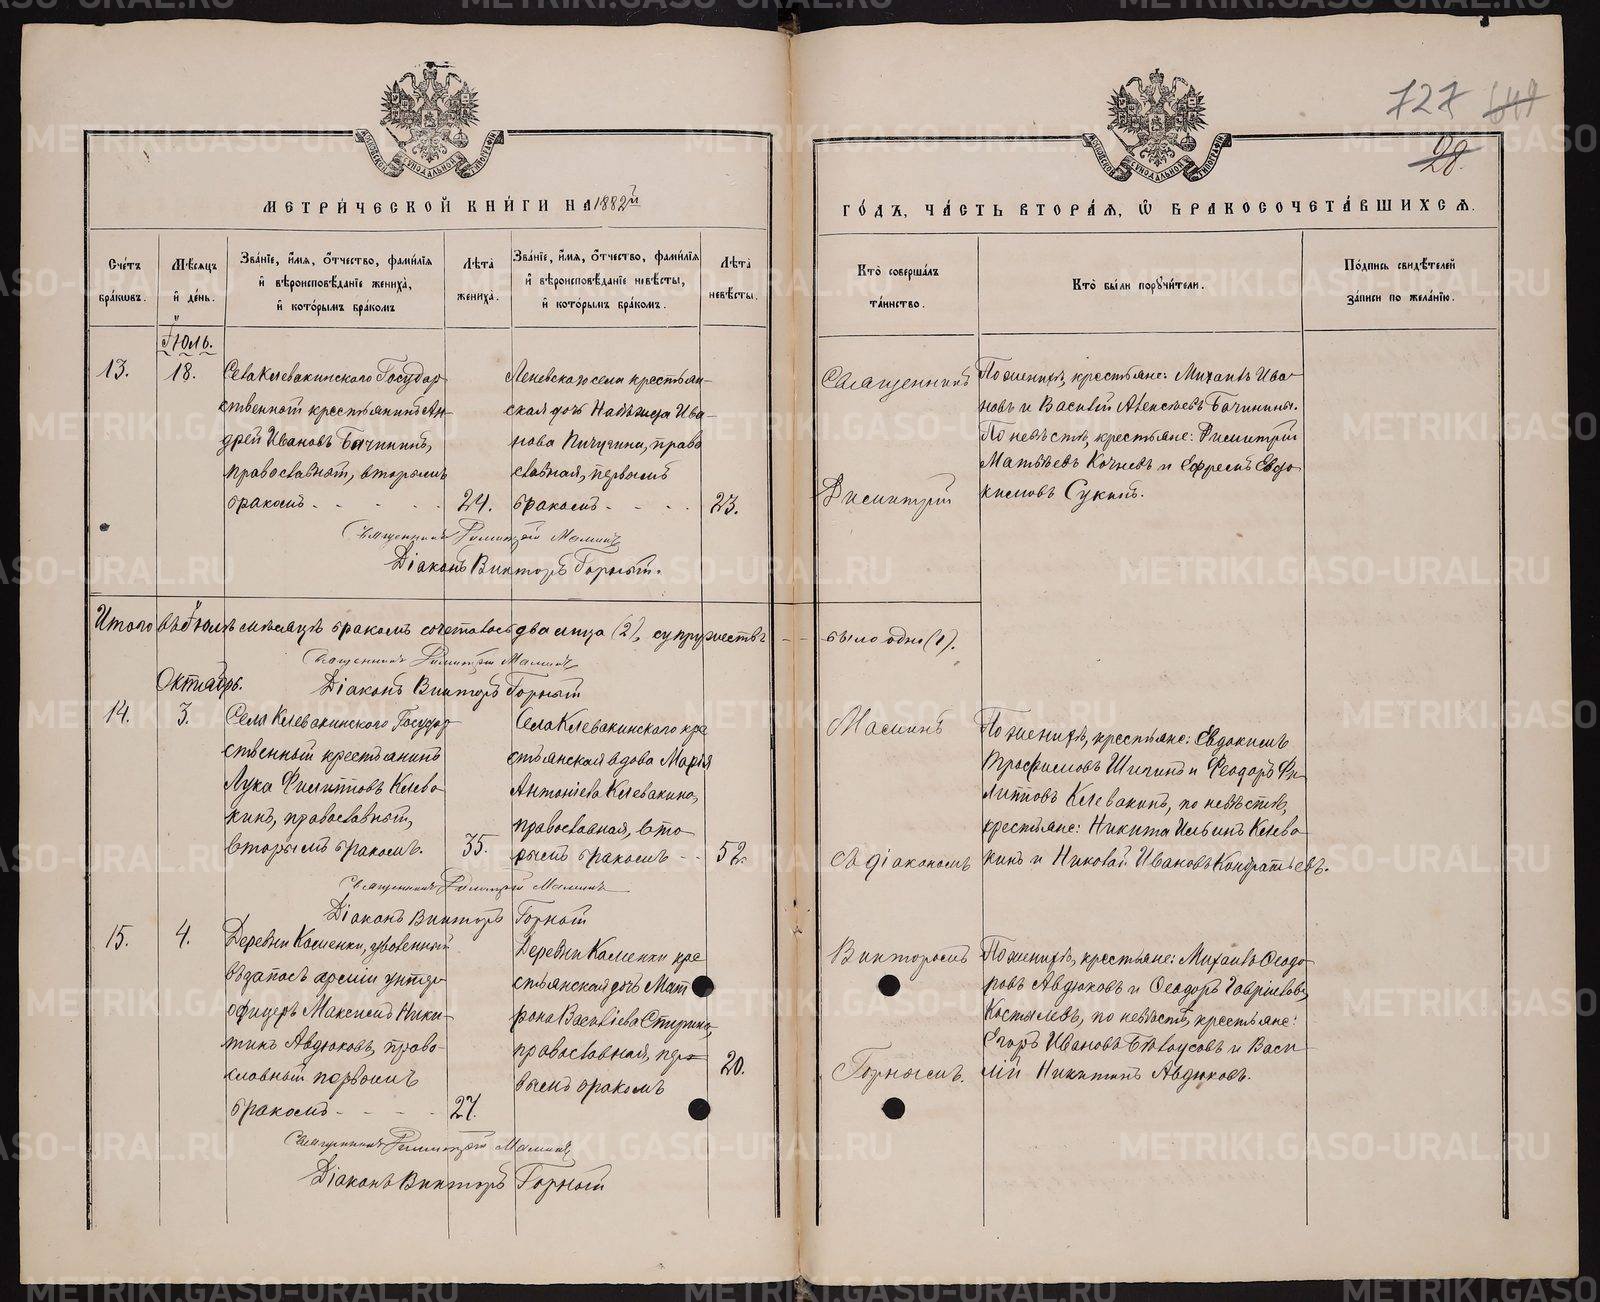 МЕТРИ́ЧЕСКОЙ КНИ́ГИ НА 1882й
ГО́ДЪ, ЧА́СТЬ ВТОРА́Ѧ, Ѡ҆ БРАКОСОЧЕТА́ВШИХСѦ.
727
28.
Сче́тъ бра́кωвъ.
Мѣ́сѧцъ и҆ де́нь.
Зва́нїе, и҆́мѧ, ѻ҆́тчество, фами́лїѧ и҆ вѣроисповѣ́данїе жениха̀, и҆ кото́рымъ бра́комъ
Лѣ́та̀ жениха̀.
Зва́нїе, и҆́мѧ, ѻ҆́тчество, фами́лїѧ и҆ вѣроисповѣ́данїе невѣ́сты, и҆ кото́рымъ бра́комъ.
Лѣ́та̀ невѣ́сты.
Кто̀ соверша́лъ та́инство.
Кто̀ бы́ли порꙋчи́тели.
По́дпись свидѣ́телей за́писи по жела́нїю.
Іюль.
13.
18.
Села Клевакинского Государ-
ственный крестьянинъ Ан-
дрей Ивановъ Бачининъ,
православный, вторымъ
бракомъ - - - - -
24.
Леневского села крестьян-
ская дочь Надежда Ива-
нова Пичугина, право
славная, первымъ
бракомъ - - - -
23.
Священникъ
Димитрій
По женихѣ, крестьяне: Михаилъ Ива-
новъ и Василій Алексѣевъ Бачинины.
По невѣстѣ, крестьяне: Димитрій
Матвѣевъ Кочневъ и Ефремъ Евдо-
кимовъ Сукинъ.
Священникъ Димитрій Маминъ
Діаконъ Викторъ Горный.
Итого въ Іюлѣ мѣсяцѣ бракомъ сочеталось два лица (2), супружествъ - -
было одно (1).
Священникъ Димитрій Маминъ
Діаконъ Викторъ Горный
Октябрь.
14.
3.
Села Клевакинского Государ
ственный крестьянинъ
Лука Филипповъ Клева
кинъ, православный,
вторымъ бракомъ.
35.
Села Клевакинского кре
стьянская вдова Марія
Антоніева Клевакина,
православная, вто
рымъ бракомъ - -
52.
Маминъ
съ діакономъ
По женихѣ, крестьяне: Евдокимъ
Трофимовъ Шигинъ и Феодоръ Фи-
липповъ Клевакинъ, по невѣстѣ,
крестьяне: Никита Ильинъ Клева
кинъ и Николай Ивановъ Кондратьевъ.
Священникъ Димитрій Маминъ
Діаконъ Викторъ Горный
15.
4.
Деревни Каменки, уволенный
въ запасъ арміи унтеръ
офицеръ Максимъ Ники-
тинъ Авдюковъ, право-
славный первымъ
бракомъ - - - -
27.
Деревни Каменки кре
стьянская дочь Мат
рона Васильева Стирина,
православная, пер-
вымъ бракомъ
20.
Викторомъ
Горнымъ.
По женихѣ, крестьяне: Михаилъ Феодо-
ровъ Авдюковъ и Феодоръ Гавріиловъ
Костылевъ, по невѣстѣ, крестьяне:
Егоръ Ивановъ Бѣлоусовъ и Васи-
лій Никитинъ Авдюковъ.
Священникъ Димитрій Маминъ
Діаконъ Викторъ Горный
METRIKI.GASO-URAL.RU